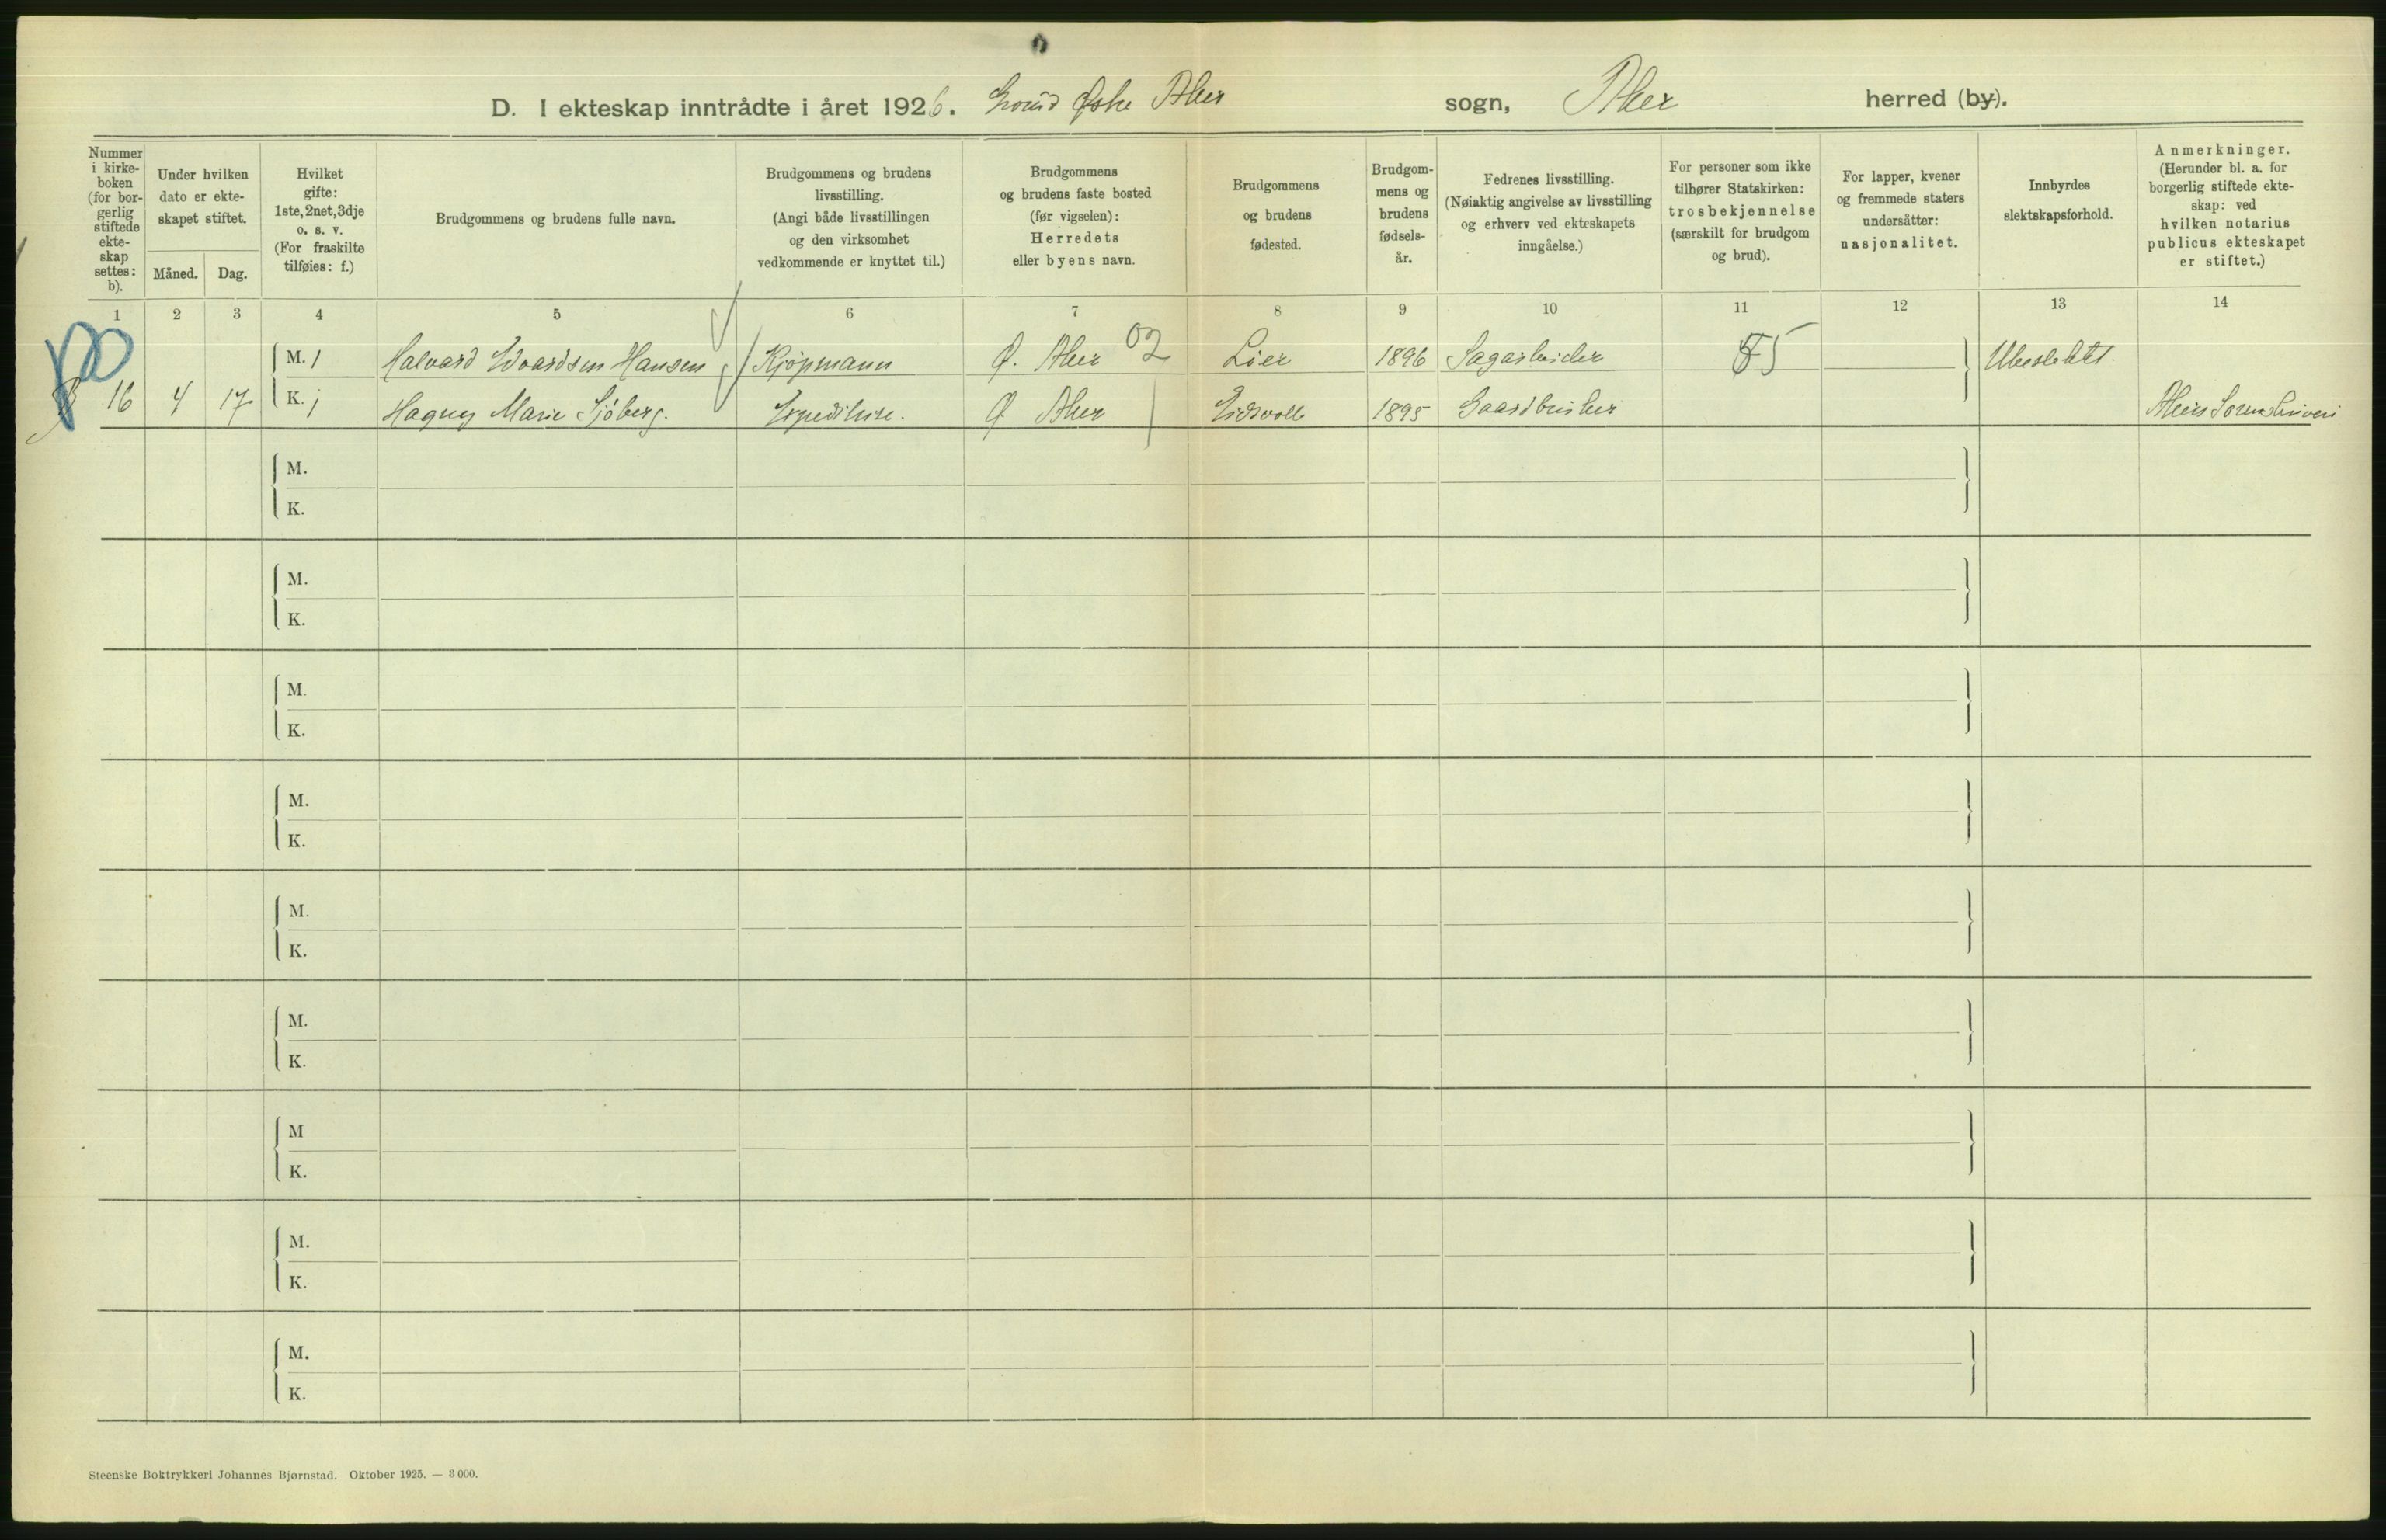 D. I ekteskap inntrådte i året 1926. Østre Aker sogn, Aker herred (by).
Nummer i kirkeboken (for borgerlig stiftede ekteskap settes: b).
Under hvilken dato er ekteskapet stiftet.
Måned. Dag.
Hvilket gifte: 1ste, 2net, 3dje o. s. v. (For fraskilte tilføies: f.)
Brudgommens og brudens fulle navn.
Brudgommens og brudens livsstilling. (Angi både livsstillingen og den virksomhet vedkommende er knyttet til.)
Brudgommens og brudens faste bosted (før vigselen): Herredets eller byens navn.
Brudgommens og brudens fødested.
Brudgommens og brudens fødselsår.
Fedrenes livsstilling. (Nøiaktig angivelse av livsstilling og erhverv ved ekteskapets inngåelse.)
For personer som ikke tilhører Statskirken: trosbekjennelse (særskilt for brudgom og brud).
For lapper, kvener og fremmede staters undersåtter: nasjonalitet.
Innbyrdes slektskapsforhold.
Anmerkninger. (Herunder bl. a. for borgerlig stiftede ekteskap: ved hvilken notarius publicus ekteskapet er stiftet.)
1 2 3 4 5 6 7 8 9 10 11 12 13 14
M. 1 Halvard Edvardsen Hansen Kjøpmann Ø. Aker 02 Lier 1896 Sagarbeider 85 Ubeslektet.
16 4 17 K. 1 Hagny Marie Sjöberg. Expeditrise. Ø Aker Eidsvoll 1895 Gaardbruker Akers Sorenskriveri
M.
K.
M.
K.
M.
K.
M.
K.
M.
K.
M.
K.
M
K.
M.
K.
M.
K.
Steenske Boktrykkeri Johannes Bjørnstad. Oktober 1925. — 3 000.